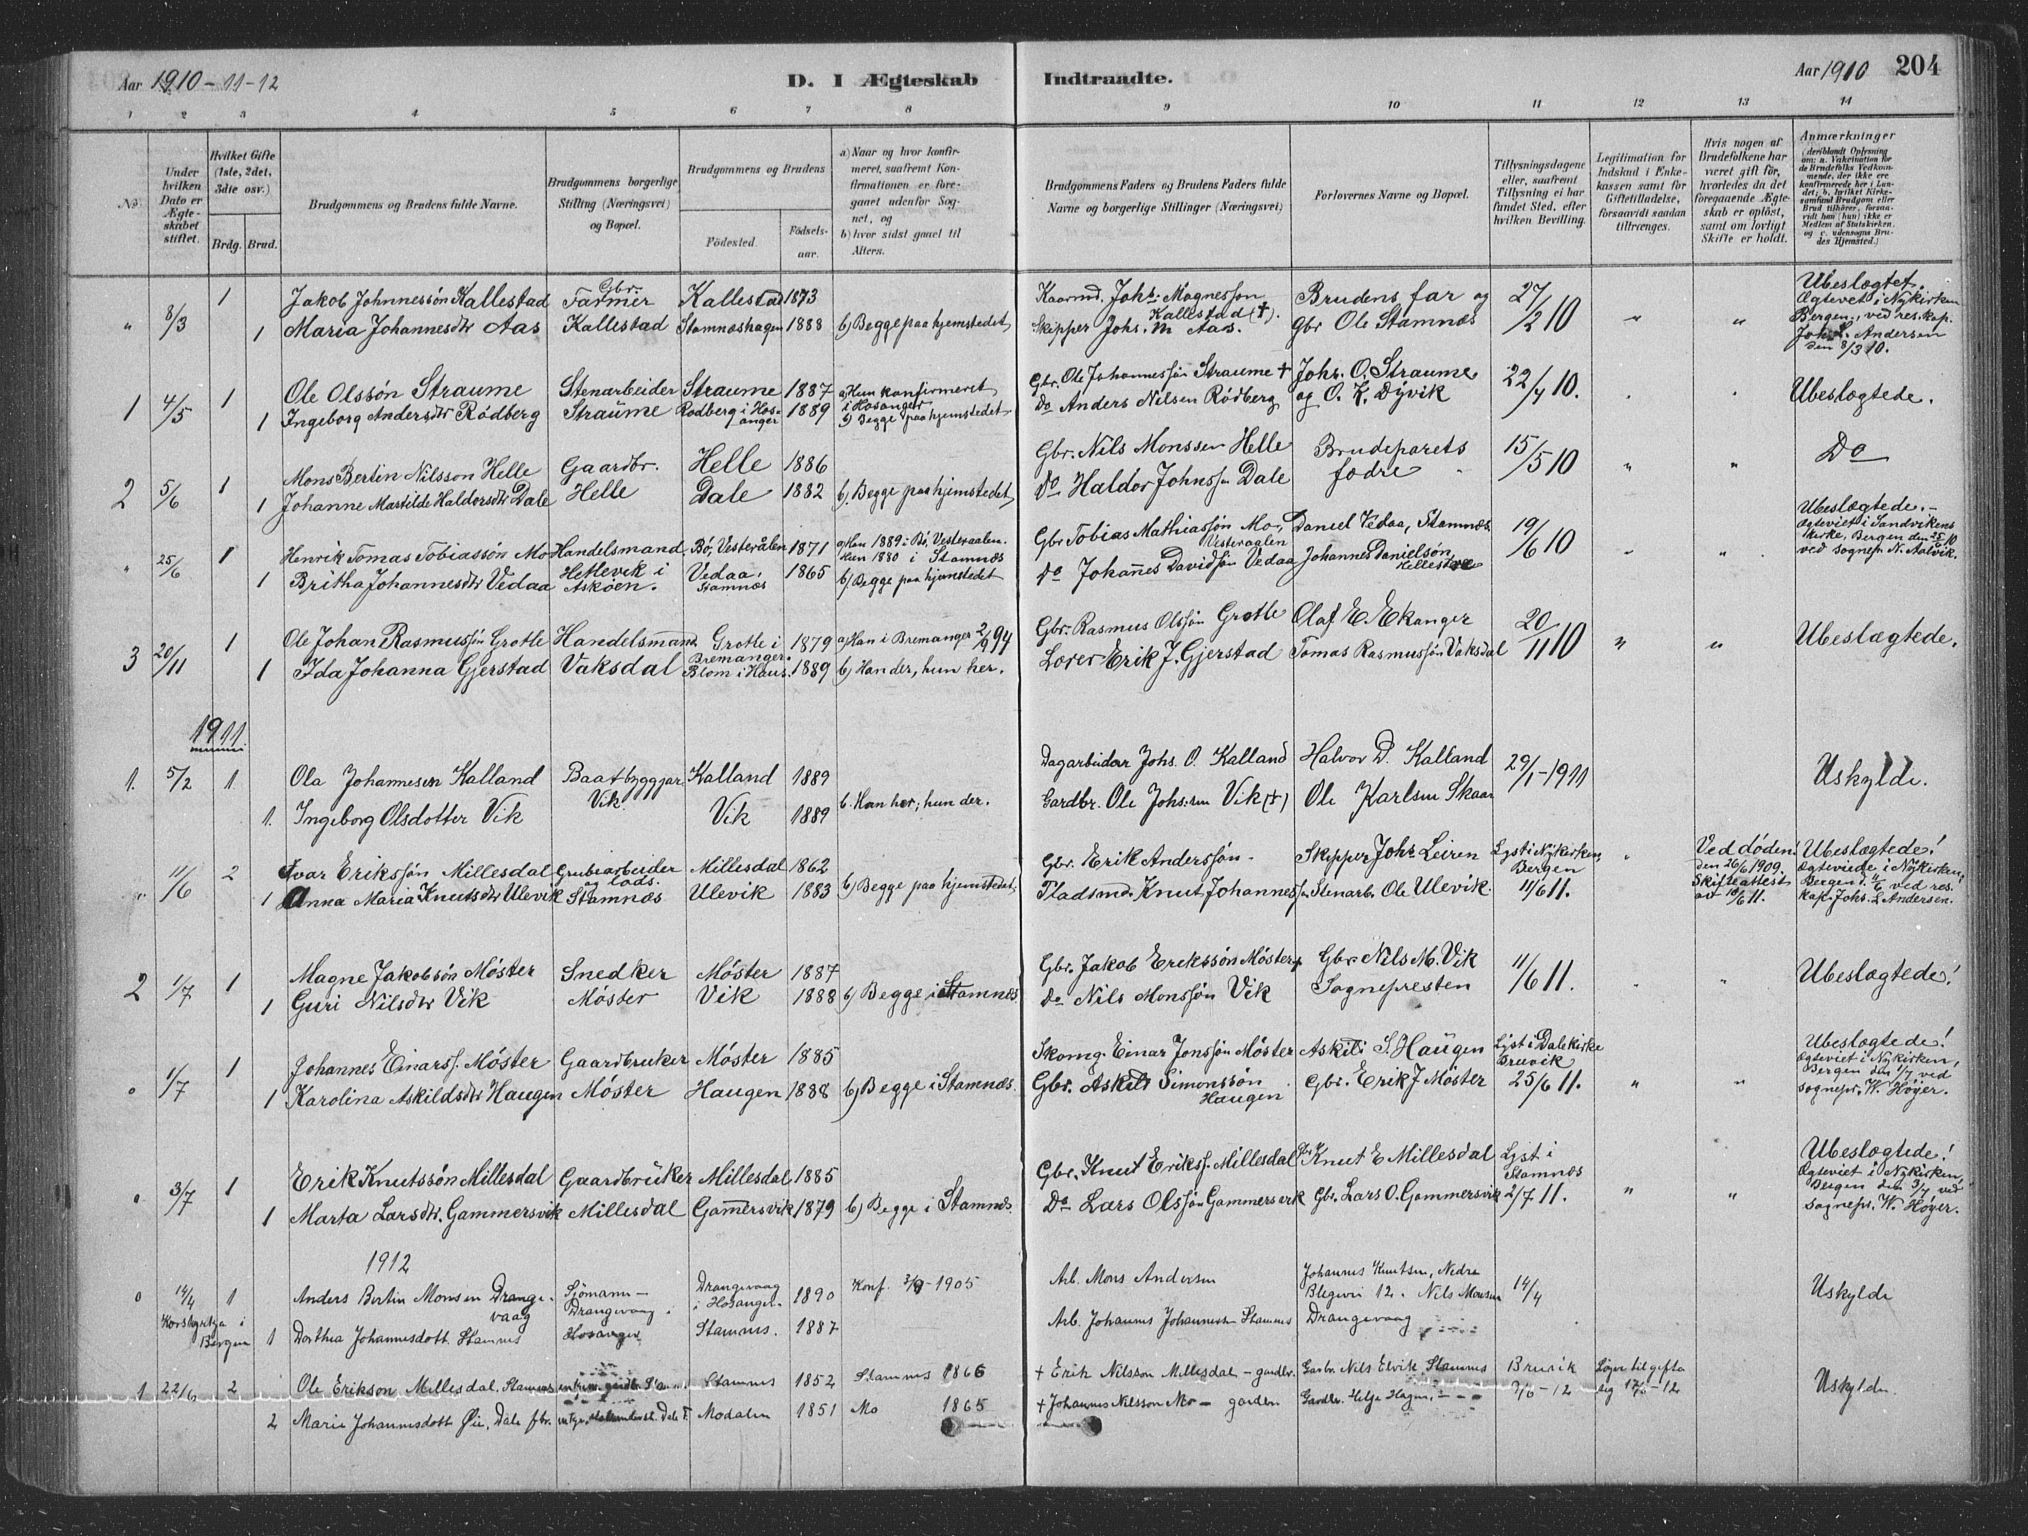 Aar 1910-11-12
D. I Ægteskab
Indtraadte.
Aar 1910
204
1 2 3 4 5 6 7 8 9 10 11 12 13 14
No.
Under hvilken Dato er Ægteskabet stiftet.
Hvilket Gifte (1ste, 2det, 3die osv.)
Brdg. Brud.
Brudgommens og Brudens fulde Navne.
Brudgommens borgerlige Stilling (Næringsvei) og Bopæl.
Brudgommens og Brudens
Födested.
Födselsaar.
a) Naar og hvor konfirmeret, saafremt Konfirmationen er foregaaet udenfor Sognet, og
b) hvor sidst gaaet til Alters.
Brudgommens Faders og Brudens Faders fulde Navne og borgerlige Stillinger (Næringsvei)
Forlovernes Navne og Bopæl.
Tillysningsdagene eller, saafremt Tillysning ei har fundet Sted, efter hvilken Bevilling.
Legitimation for Indskud i Enkekassen samt for Giftetilladelse, forsaavidt saadan tiltrænges.
Hvis nogen af Brudefolkene har været gift för, hvorledes da det foregaaende Ægteskab er oplöst, samt om lovligt Skifte er holdt.
Anmærkninger (deriblandt Oplysning om: a. Vakcination for de Brudefolks Vedkommende, der ikke ere konfirmerede her i Landet; b. hvilket Kirkesamfund Brudgom eller Brud tilhörer, forsaavidt han (hun) ikke er Medlem af Statskirken. og c. udensogns Brudes Hjemsted.)
" 8/3 1 Jakob Johnnessøn Kallestad Gbr. Farmer Kallestad 1873 Kaarmd. Johs. Magnesson Kallestad (†). Brudens far og 27/2 10 " " Ubeslægtet.
1 Maria Johannesdtr Aas Kallestad Stamneshagen 1888 b) Begge paa hjemstedet Skipper Johs. M Aas. Gbr Ole Stamnæs Ægteviet i Nykirken Bergen, ved res. kap. Joh. L. Andersen den 8/3 10.
1 4/5 1 Ole Olssøn Straume Stenarbeider Straume 1887 a) Hun konfirmeret i Hosanger Gbr. Ole Johannessøn Straume † Johs. O. Straume 22/4 10. Ubeslægtede.
1 Ingeborg Andersdtr Rødberg Straume Rødberg i Hosanger 1889 b) Begge paa hjemstedet Do Anders Nilsen Rødberg og O. K. Dyvik
2 5/6 1 Mons Bertin Nilsson Helle Gaardbr. Helle 1886 Gbr. Nils Monssen Helle Brudeparets 15/5 10 " " Do
1 Johanne Martilde Haldorsdtr Dale Helle Dale 1882 b) Begge paa hjemstedet Do Haldor Johnssøn Dale fædre
" 25/6 1 Henrik Tomas Tobiassøn Mo Handelsmand Bø, Vesterålen 1871 a) Han 1889 i Bø, Vesteraalen. Hun 1880 i Stamnæs Gbr Tobias Mathiassøn Mo, Vesteraalen Daniel Vedaa, Stamnæs 19/6 10 " " Ubeslægtede.-
1 Britha Johannesdtr Vedaa Hetlevik i Askøen. Vedaa, Stamnæs 1865 b) Begge paa hjemstedet Do Johannes Davidsøn Vedaa Johannes Danielsøn Ægteviet i Sandvikens Kirke, Bergen den 25/6 10 ved sognepr. N. Aalvik.
3 20/11 1 Ole Johan Rasmussøn Grotle Handelsmand Grotle i Bremanger. 1879 a) Han i Bremanger 2/9 94 Gbr. Rasmus Olssøn Grotle Olaf E. Ekanger 20/11 10 " " Ubeslægtede.
1 Ida Johanna Gjerstad Vaksdal Blom i Haus. 1889 b) Han der, hun her. Lærer Erik J. Gjerstad Tomas Rasmussøn Vaksdal
1911
1. 5/2 1 Ola Johannesen Kalland Baatbyggjar Kalland 1889 Dagarbeidar Johs. O. Kalland Halvor D. Kalland 29/1-1911 Uskylde.
1. Ingeborg Olsdotter Vik Vik. Vik 1889 b. Han her; hun der. Gardbr. Ole Johs.sen Vik (†) Ole Karlsen Skaar
" 11/6 2 Ivar Erikssøn Millesdal Grubearbeider Millesdal 1862 Gbr. Erik Anderssøn. Skipper Johs Leiren Lyst i Nykirken, Bergen " Ved døden den 26/6 1909. Ubeslægtede!
1 Anna Maria Knutsdtr Ulevik Stamnæs Ulevik 1883 b) Begge paa hjemstedet. Pladsmd. Knut Johannessøn Stenarb. Ole Ulevik. 11/6 11. Skifteattest av 10/6 11. Ægteviede i Nykirken, Bergen, 11/6 ved res. kap. Johs. L Andersen.
2 1/7 1 Magne Jakobsøn Møster Snedker Møster 1887 Gbr. Jakob Erikssøn Møster Gbr Nils M. Vik 11/6 11. Ubeslægtede!
1 Guri Nilsdtr Vik Møster Vik 1888 b) Begge i Stamnes Do Nils Monssøn Vik Sognepresten
" 1/7 1 Johannes Einarss. Møster Gaardbruker Møster 1885 Skomg. Einar Jonssøn Møster Askild S. Haugen Lyst i Dale kirke Bruvik Ubeslægtede!
1 Karolina Askildsdtr Haugen Møster Haugen 1888 b) Begge i Stamnæs. Gbr. Askild Simonssøn Haugen Gbr. Erik J Møster 25/6 11. " " Ægteviet i Nykirken, Bergen den 1/7 ved sognepr. W. Høyer.
" 3/7 1 Erik Knutssøn Millesdal Gaardbrüker Millesdal 1885 Gbr. Knut Erikss. Millesdal Knut E Millesdal Lyst i Stamnæs Ubeslægtede!
1 Marta Larsdtr. Gammersvik Millesdal Gamersvik 1879 b) Begge i Stamnæs. Do Lars Olssøn Gammersvik Gbr. Lars O. Gammersvik 2/7 11. " " Ægteviet i Nykirken, Bergen den 3/7 ved sognepr. W. Høyer.
1912
" 14/4 Korskyrkja i Bergen 1 Anders Bertin Monsen Drangevaag Sjömann Drangevaag i Hosanger. 1890 Konf. 3/9-1905 Arb. Mons Andersen Johannes Knutsen, Nedre Blegevei 12. Nils Monsen 14/4 Uskylde
1 Dorthia Johannesdott Stamnes Drangevaag, Hosanger Stamnes. 1887 Arb. Johannes Johannessen Stamnes Drangevaag
1 22/6 2 Ole Erikson Millesdal, Stamnes Stamnes 1852 Stamnes 1866 † Erik Nilsson Millesdal - gardbr. Gardbr. Nils Elvik Stamnes Bruvik Løyve til gifta seg Uskylde.
2 Maria Johannesdott Øie, Dale Modalen 1851 Mo 1865 † Johannes Nilsson Mo - gardbr